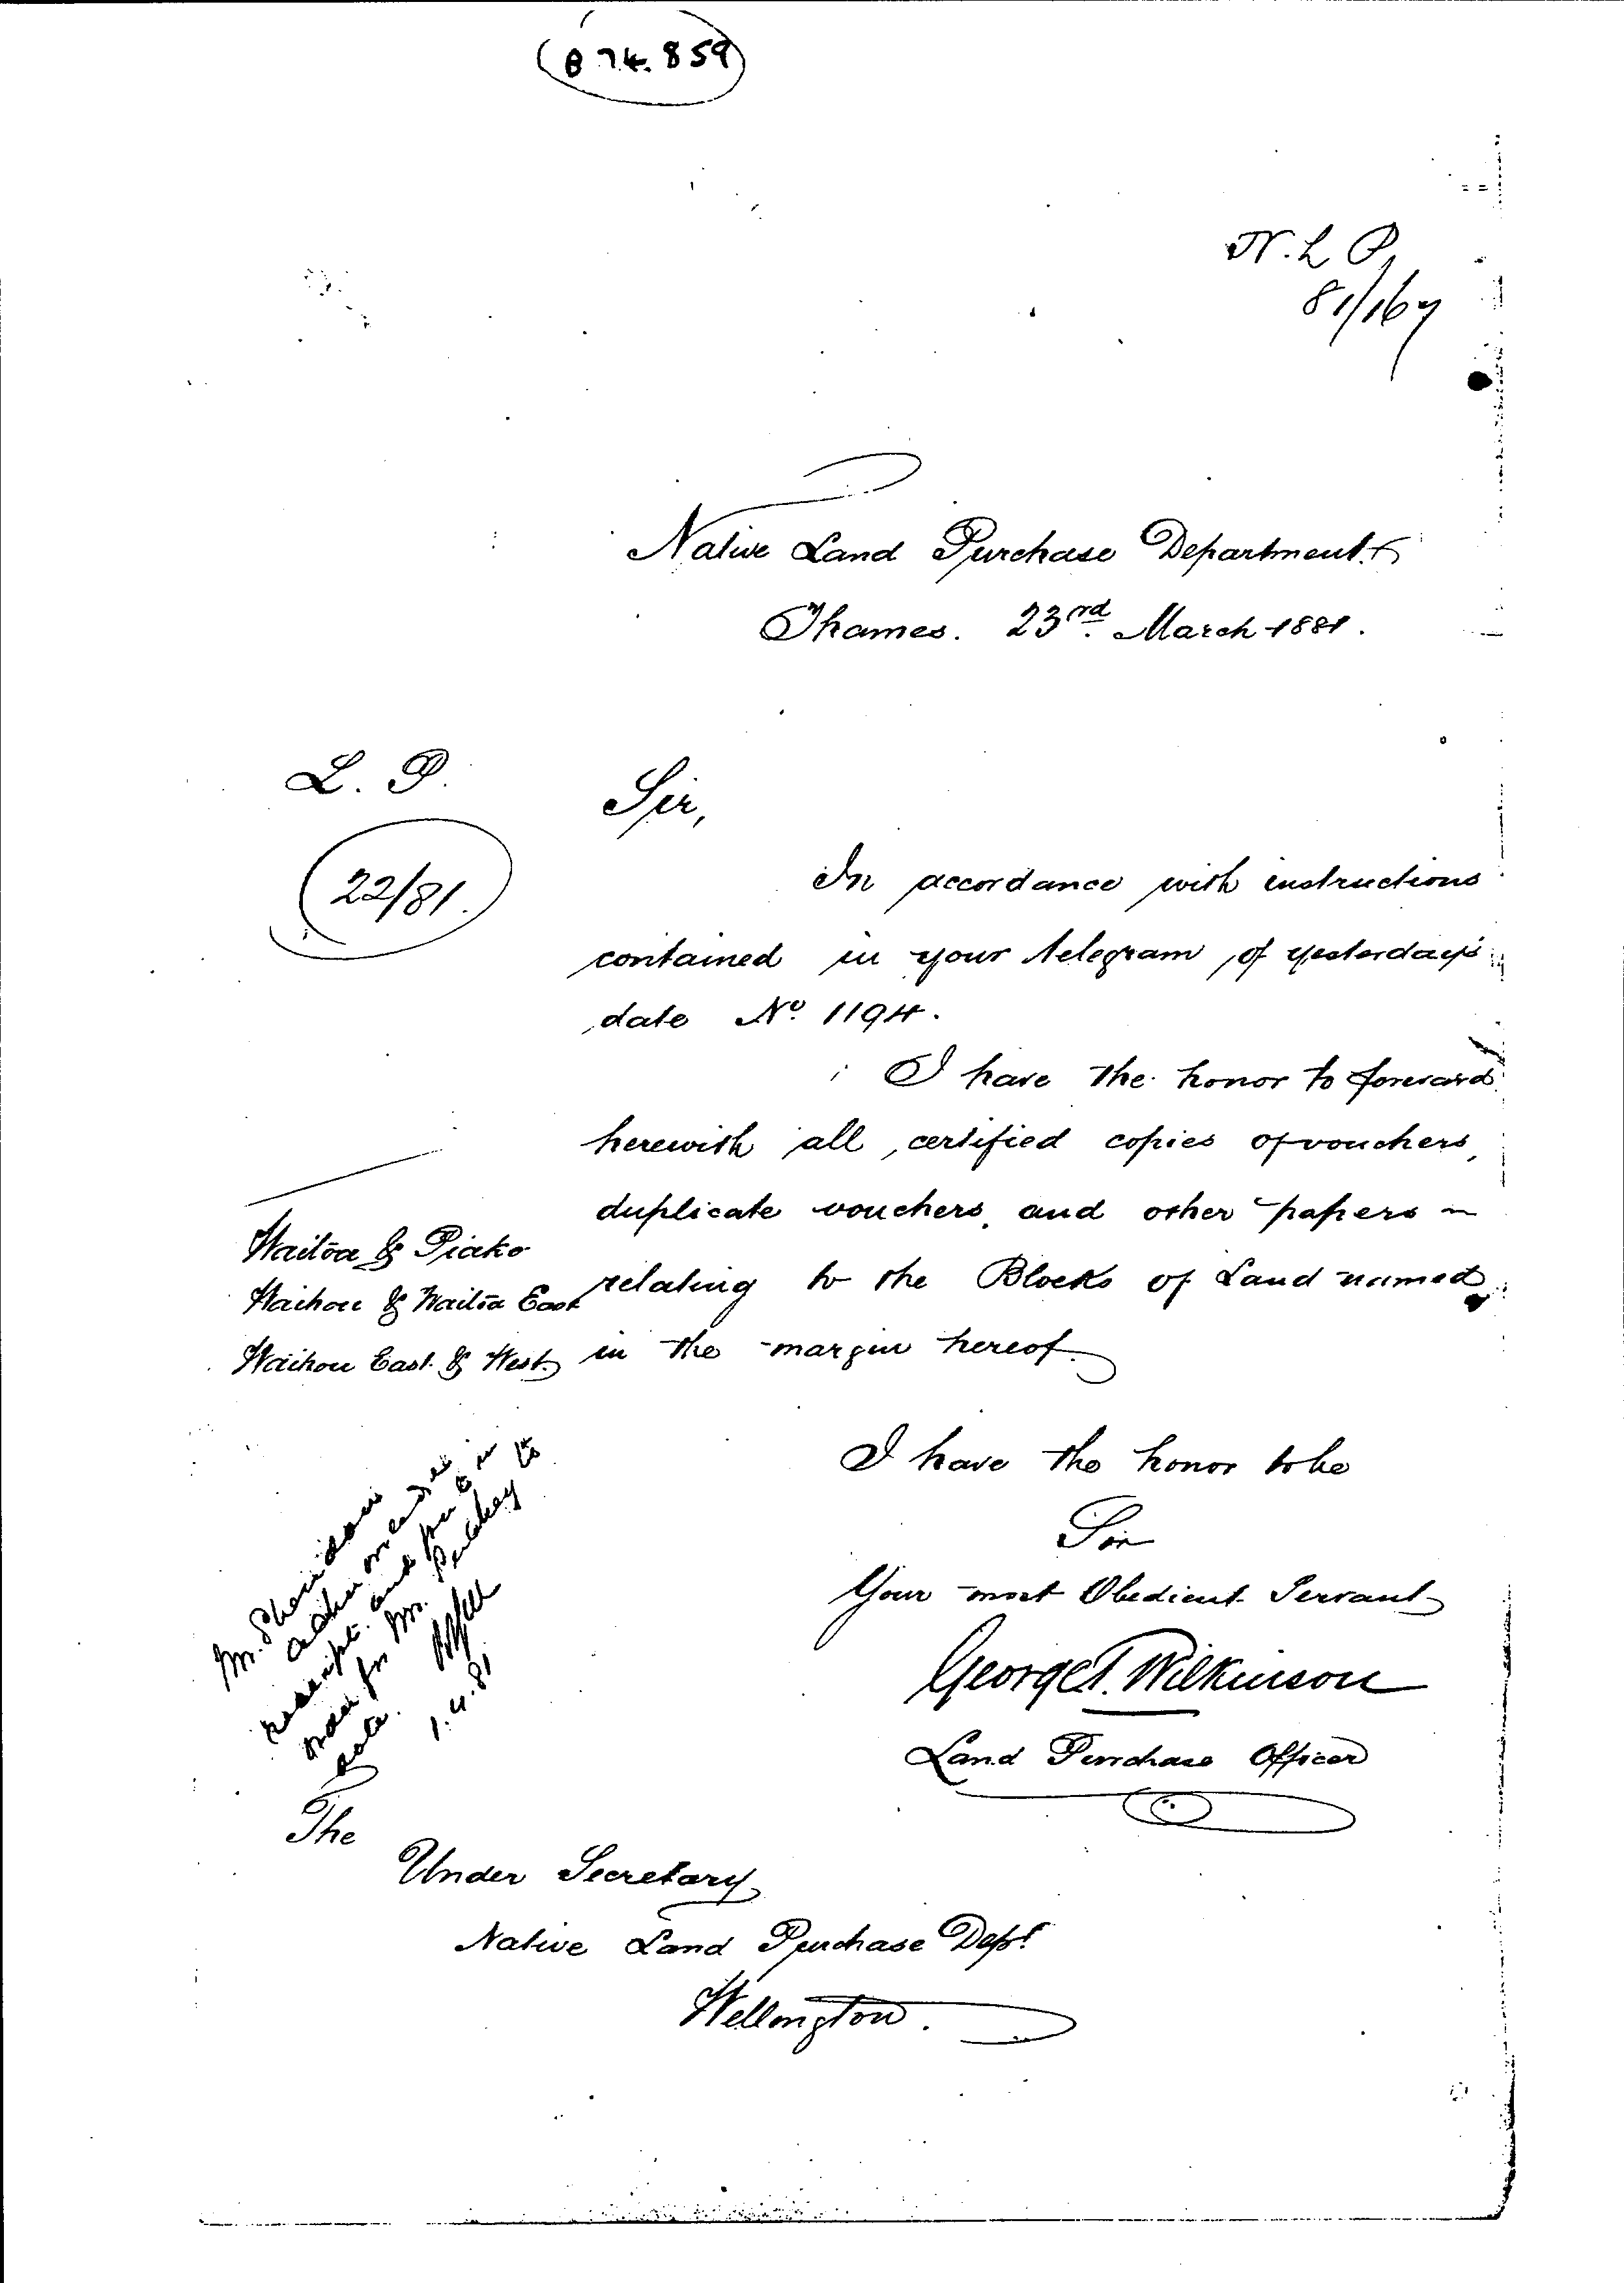 B 74.859
N. L P
81/167
Native Land Purchase Department
Thames. 23rd. March 1881.
L. P.
22/81.
Sir,
In accordance with instructions
contained in your telegram of yesterday's
date No. 1194.
I have the honor to forward
herewith all certified copies of vouchers,
duplicate vouchers, and other papers
relating to the Blocks of Land named
in the margin hereof.
Waitoa & Piako
Waihou & Waitoa East
Waihou East & West.
I have the honor to be
Sir
Your most Obedient Servant
George T. Wilkinson
Land Purchase Officer
Mr. Sheridan
receipt. and
for Mr.
1.4.81
The
Under Secretary
Native Land Purchase Dept.
Wellington.